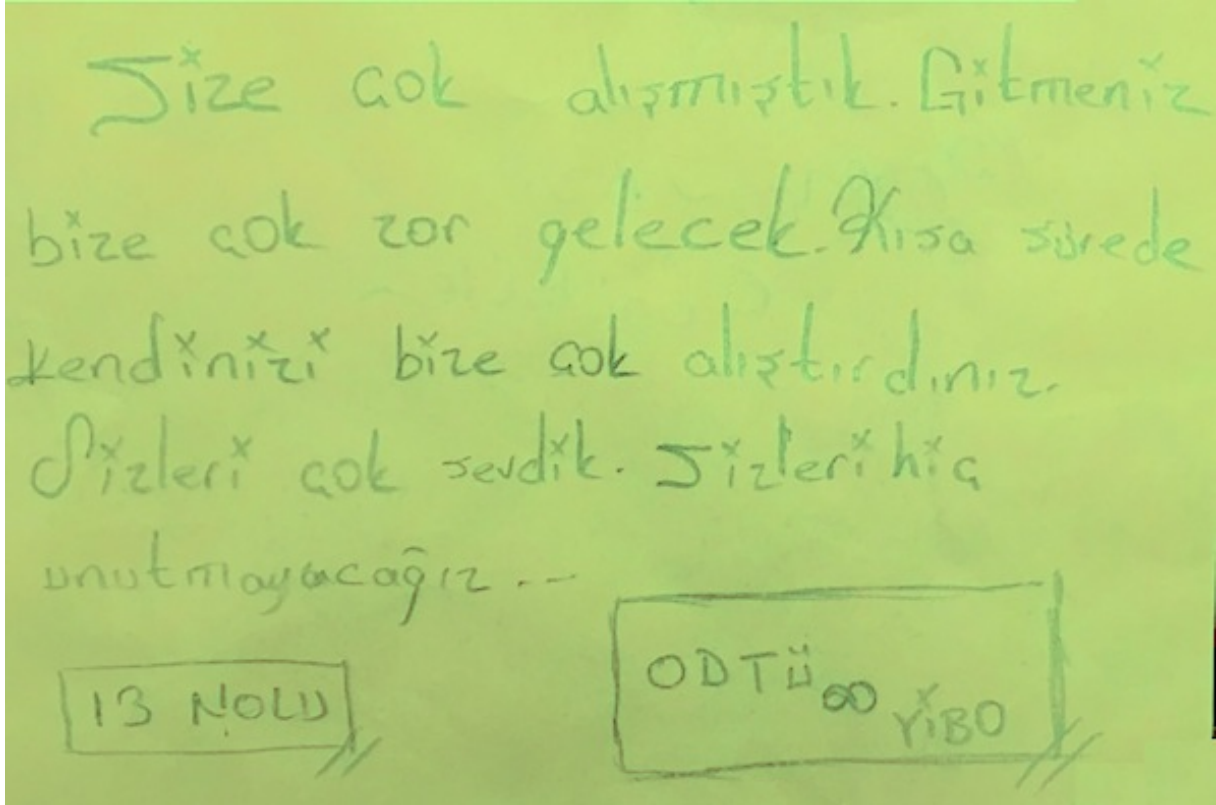 Size çok alışmıştık. Gitmeniz
bize çok zor gelecek. Kısa sürede
kendinizi bize çok alıştırdınız.
Sizleri çok sevdik. Sizleri hiç
unutmayacağız...
13 NOLU
ODTÜ ∞ YİBO